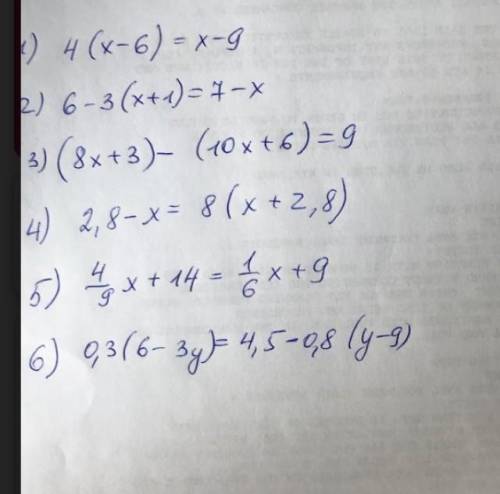 1) 4(x-6)=x-9
2) 6-3(x+1)=7-x
3) (8x+3)-(10x+6)=9
4) 2,8-x=8(x+2,8)
5) 4/9 x+14=1/6 x+9
6) 0,3(6-3y)=4,5-0,8(y-9)